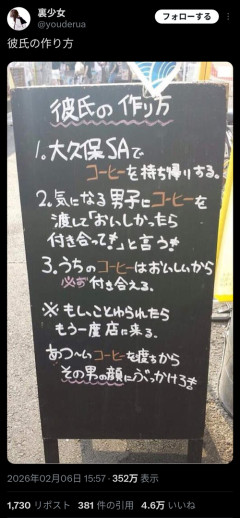 裏少女
@youderua
フォローする
彼氏の作り方
彼氏の作り方
1.大久保SAで
コーヒーを持ち帰りする。
2.気になる男子にコーヒーを
渡して「おいしかったら
付き合って!」と言う!
3.うちのコーヒーはおいしいから
必ず付き合える。
※もしことわられたら
もう一度店に来る。
あつ〜いコーヒーを渡すから
その男の顔にぶっかけろ!
2026年02月06日 15:57・352万 表示
1,730 リポスト 381 件の引用 4.6万 いいね